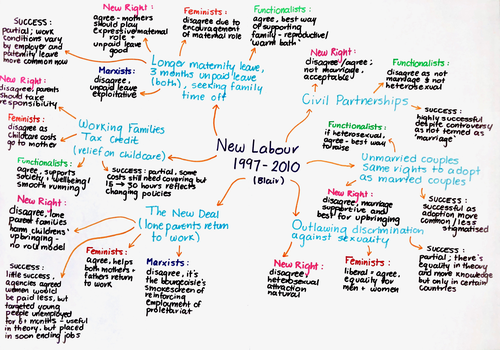 New Labour
1997-2010
(Blair)
Longer maternity leave,
3 months unpaid leave
(both), seeking family
time off
SUCCESS:
partial; work
conditions vary
by employer and
paternity leave
more common now
New Right:
agree - mothers
should play
expressive/maternal
role +
unpaid leave
good
Feminists:
disagree due to
encouragement
of maternal role
Functionalists:
agree, best way
of supporting
family - reproductive/
'warm bath'
Marxists:
disagree,
unpaid leave
exploitative
Civil Partnerships
New Right:
disagree/agree;
not marriage,
acceptable?
Functionalists:
disagree as not
marriage & not
heterosexual
SUCCESS:
highly successful
despite controversy
as not termed as
'marriage'
Unmarried couples
same rights to adopt
as married couples
Functionalists:
if heterosexual,
agree - best way
to raise
New Right:
disagree, marriage
supportive and
best for upbringing
SUCCESS:
successful as
adoption more
common/less
stigmatised
Outlawing discrimination
against sexuality
New Right:
disagree;
heterosexual
attraction
natural
Feminists:
liberal = agree,
equality for
men + women
SUCCESS:
partial; there's
equality in theory
and more knowledge
but only in certain
countries
The New Deal
(lone parents return
to work)
New Right:
disagree, lone
parent families
harm childrens'
upbringing -
no role model
SUCCESS:
little success;
agencies agreed
women would
be paid less, but
targeted young
people unemployed
for 6+ months - useful
in theory, but placed
in soon ending jobs
Feminists:
agree, helps
both mothers +
fathers return
to work
Marxists:
disagree, it's
the bourgeoisie's
smokescreen of
reinforcing
employment of
proletariat
Working Families
Tax Credit
(relief on childcare)
New Right:
disagree, parents
should take
responsibility
Feminists:
disagree as
childcare costs
go to mother
Functionalists:
agree, supports
society + wellbeing/
smooth running
SUCCESS: partial, some
costs still need covering but
15 → 30 hours reflects
changing policies